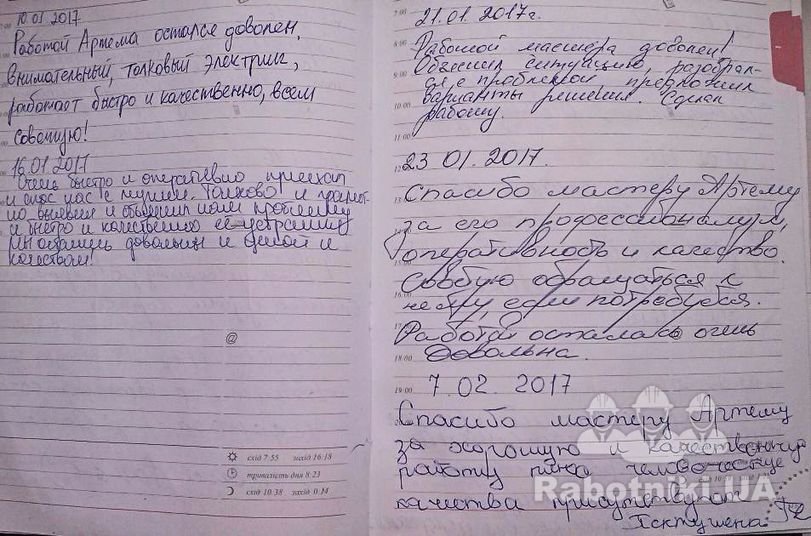 10.01.2017
Работой Артема остался доволен,
внимательный, толковый электрик,
работает быстро и качественно, всем
советую!
16.01.2017
Очень быстро и оперативно приехал
и спас нас с мужем. Толково и грамот-
но, выявил и объяснил нам проблему
и быстро и качественно её устранил
Мы остались довольны и ценой и
качеством!
@
схід 7:55 захід 16:18
тривалість дня 8:23
схід 10:38 захід 0:14
7:00
21.01.2017г.
8:00
Работой мастера доволен!
9:00
Объяснил ситуацию, разобрал-
ся с проблемой предложил
10:00
варианты решения. Сделал
работу.
11:00
23 01.2017.
Спасибо мастеру Артему
за его профессионализм,
оперативность и качество.
Советую обращаться к
16:00
нему, если потребуется.
Работой осталась очень
18:00
довольна.
19:00
7.02.2017
Спасибо мастеру Артему
за хорошую и качественную
работу
качества присутствуют
Rabotniki.UA